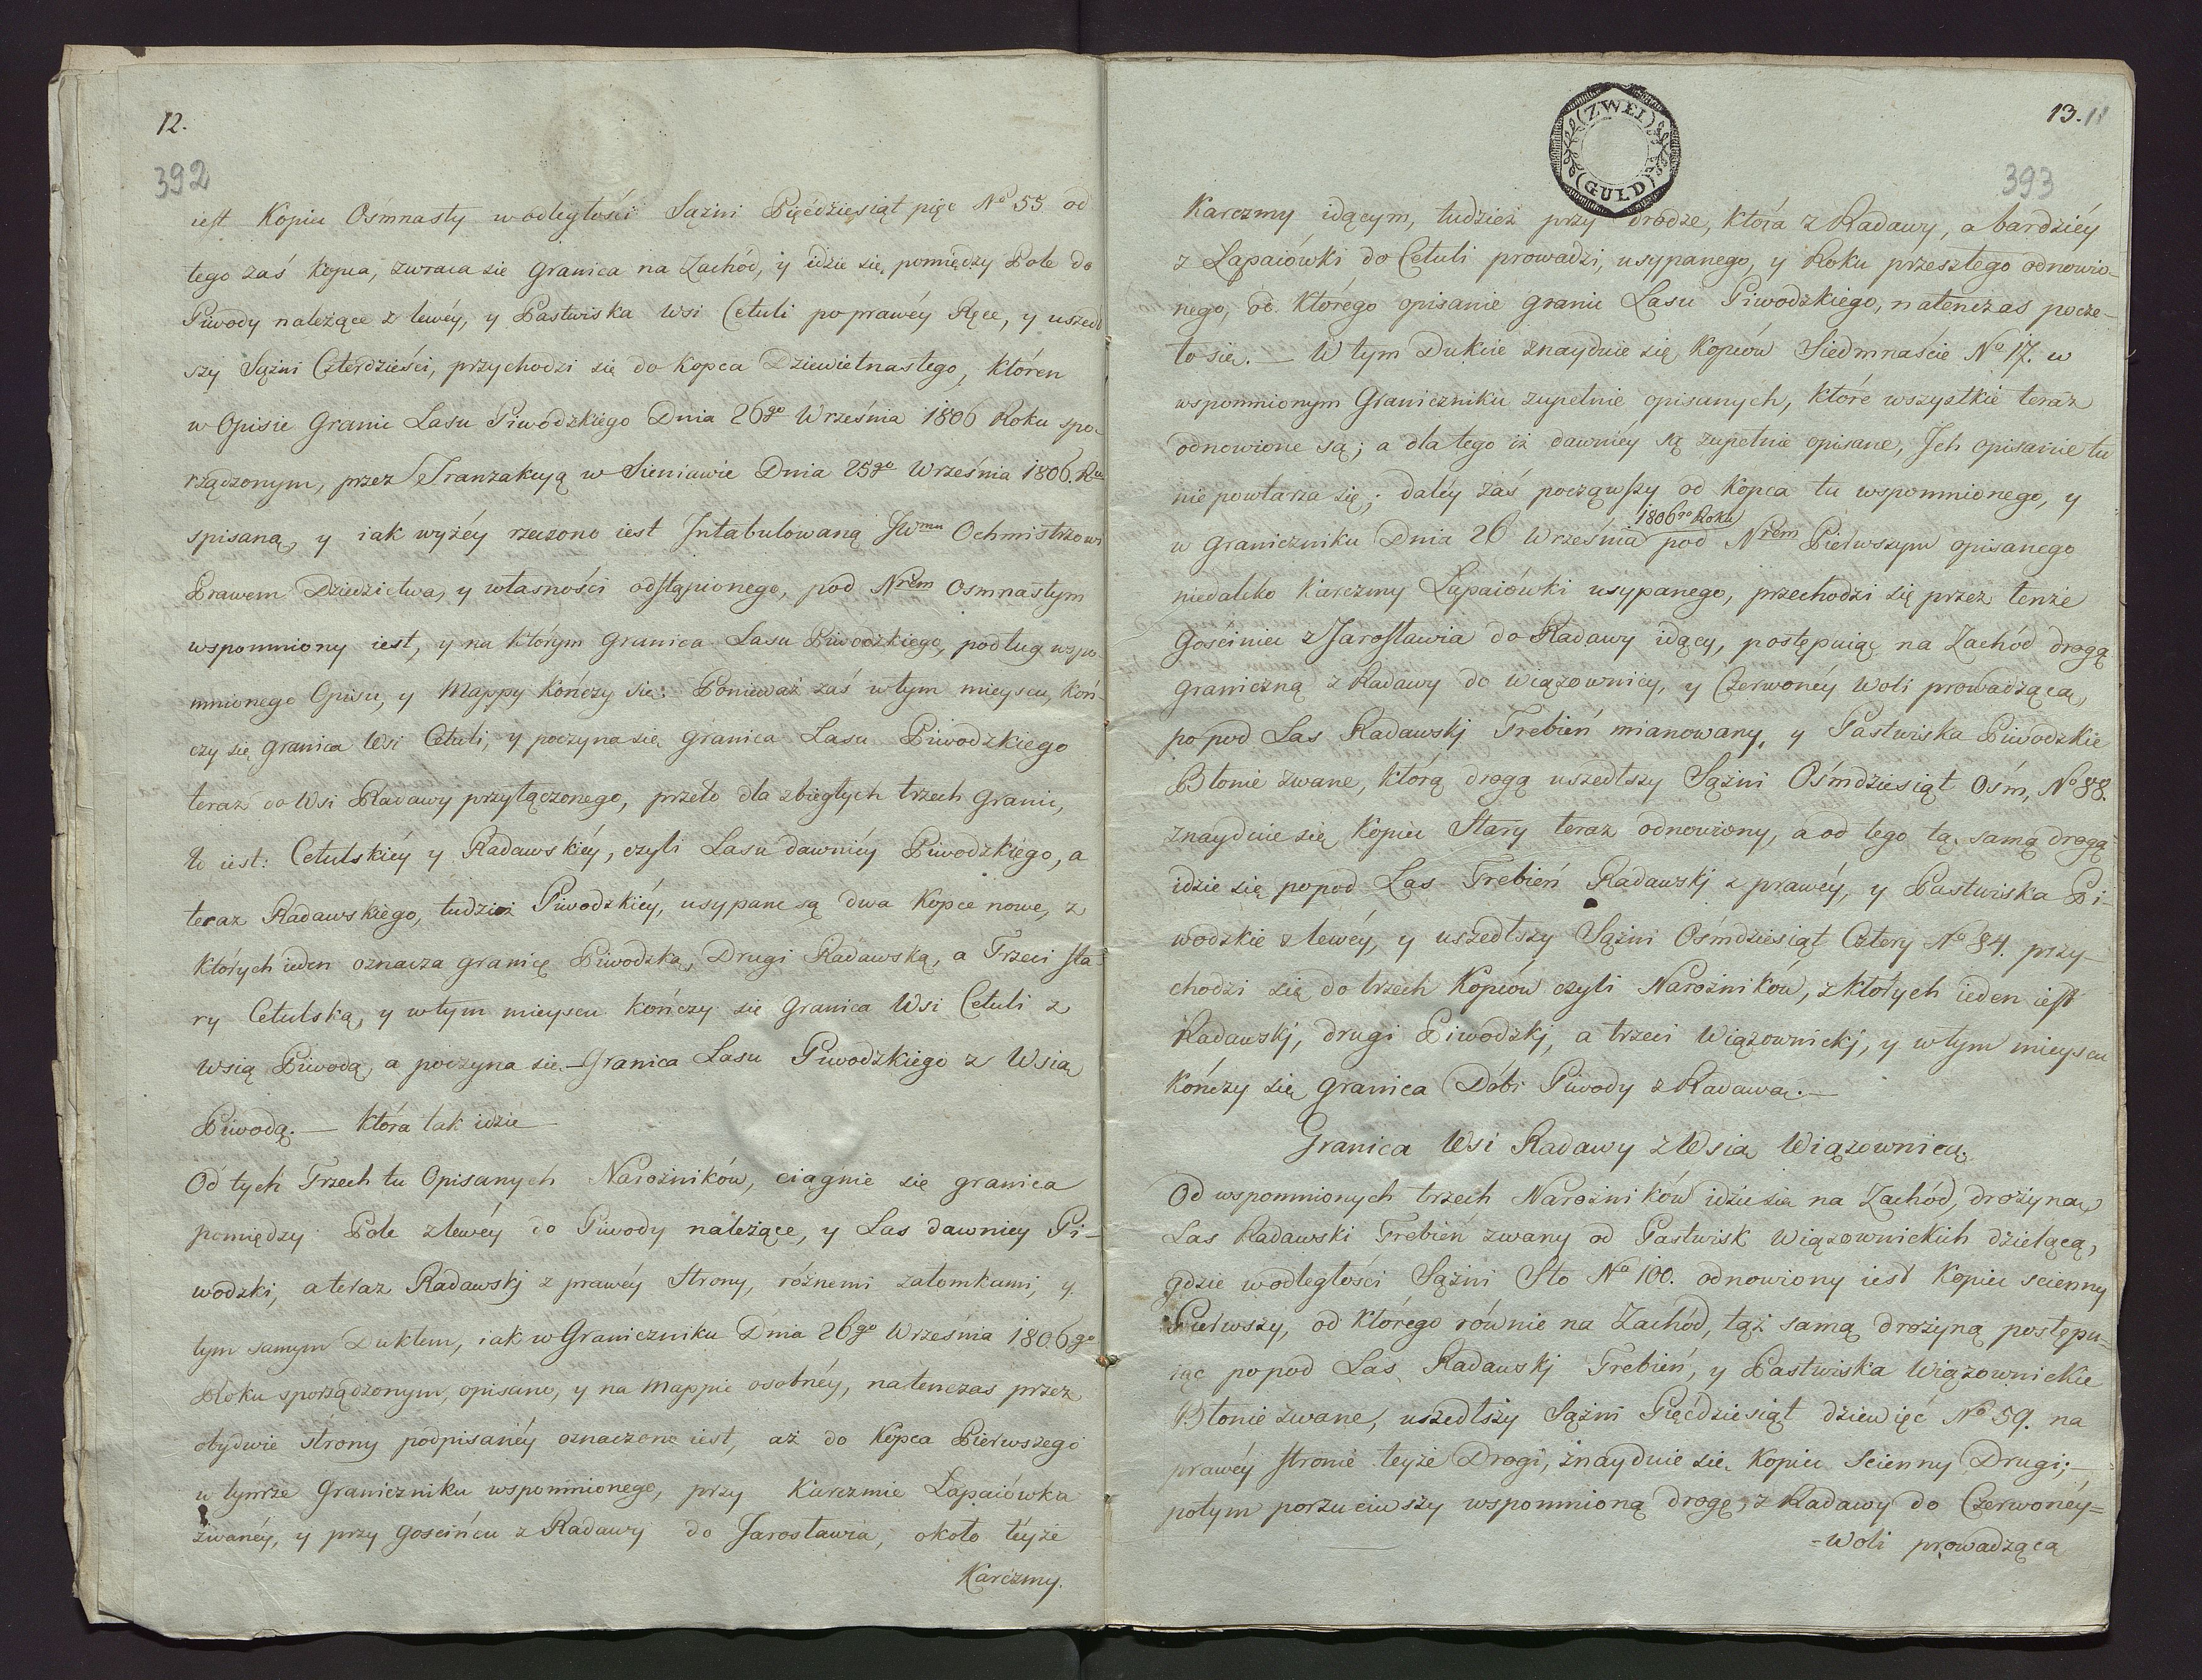 12.
392
iest Kopiec Osmnasty w odległości Sążni Pięćdziesiąt pięc No 55 od
tego zaś Kopca, zwraca się Granica na Zachód, y idzie się pomiędzy Pole do
Piwody należące z lewéy, y Pastwiska Wsi Cetuli po prawéy Ręce, y uszed
szy Sążni Czterdzieści, przychodzi się do Kopca Dziewietnastego, któren
w Opisie Granic Lasu Piwodzkiego Dnia 26go Września 1806 Roku spo-
rządzonym, przez Tranzakcyą w Sieniawie Dnia 25go Września 1806. Rku
spisaną, y iak wyżéy rzeczono iest Intabulowaną JWmu Ochmistrzowi
Prawem Dziedzictwa, y własności odstąpionego, pod Nrem Osmnastym
wspomniony iest, y na którym Granica Lasu Piwodzkiego, podług wspo-
mnionego Opisu, y Mappy kończy się: Ponieważ zaś w tym mieyscu, koń-
czy się Granica Wsi Cetuli, y poczyna się Granica Lasu Piwodzkiego
teraz do Wsi Radawy przyłączonego, przeto dla zbiegłych trzech Granic,
to iest: Cetulskiéy y Radawskiéy, czyli Lasu dawniéy Piwodzkiego, a
teraz Radawskiego, tudzież Piwodzkiéy, usypane są dwa Kopce nowe, z
których ieden oznacza granicę Piwodzką, Drugi Radawską, a Trzeci sta-
ry Cetulską, y w tym mieyscu kończy się Granica Wsi Cetuli z
Wsią Piwodą, a poczyna się Granica Lasu Piwodzkiego z Wsią
Piwodą. — która tak idzie —
Od tych Trzech tu Opisanych Narożników, ciągnie się granica
pomiędzy Pole z lewéy do Piwody należące, y Las dawniey Pi-
wodzki, a teraz Radawskj z prawéy Strony, różnemi załomkami, y
tym samym Duktem, iak w Graniczniku Dnia 26go Września 1806go
Roku sporządzonym, opisano, y na Mappie osobnéy, natenczas przez
obydwie strony podpisanéy oznaczone iest, aż do Kopca Pierwszego
w tymże Graniczniku wspomnionego, przy Karczmie Łapaiówka
zwanéy, y przy Gościńcu z Radawy do Jarosławia, około téyże
Karczmy.
13. 11
393
ZWEI
GULD
Karczmy idącym, tudzież przy drodze, która z Radawy, a bardziéy
z Łapaiówki do Cetuli prowadzi, usypanego, y Roku przeszłego odnowio-
nego, od którego opisanie granic Lasu Piwodzkiego, natenczas poczę-
to się. — W tym Dukcie znayduie się Kopców Siedmnaście No 17. w
wspomnionym Graniczniku zupełnie opisanych, które wszystkie teraz
odnowione są; a dla tego iż dawniéy są zupełnie opisane, Ich opisanie tu
nie powtarza się; daléy zaś począwszy od Kopca tu wspomnionego, y
1806go Roku
w Graniczniku Dnia 26 Września pod Nrem Pierwszym opisanego
niedaleko Karczmy Łapaiówki usypanego, przechodzi się przez tenże
Gościniec z Jarosławia do Radawy idący, postępuiąc na Zachód drogą
graniczną z Radawy do Wiązownicy, y Czerwonéy Woli prowadzącą,
po pod Las Radawskj Trebień mianowany, y Pastwiska Piwodzkie
Błonie zwane, którą drogą uszedłszy Sążni Ośmdziesiąt Ośm, No 88.
znayduie się Kopiec Stary teraz odnowiony, a od tego tą samą drogą
idzie się popod Las Trebień Radawskj z prawéy, y Pastwiska Pi-
wodzkie z lewéy, y uszedłszy Sążni Ośmdziesiąt Cztery No 84. przy-
chodzi się do trzech Kopców czyli Narożników, z których ieden iest
Radawskj, drugi Piwodzkj, a trzeci Wiązownickj, y w tym mieyscu
kończy się granica Dóbr Piwody z Radawą. —
Granica Wsi Radawy z Wsią Wiązownicą.
Od wspomnionych trzech Narożników idzie się na Zachód, drożyną
Las Radawski Trebień zwany od Pastwisk Wiązownickich dzielącą,
gdzie w odległości Sążni Sto No 100. odnowiony iest Kopiec scienny
Pierwszy, od którego równie na Zachód, tąż samą drożyną postępu-
iąc popod Las Radawskj Trebień, y Pastwiska Wiązownickie
Błonie zwane, uszedłszy Sążni Pięćdziesiąt dziewięć No 59. na
prawéy stronie teyże Drogi, znayduie się Kopiec Scienny Drugi; —
potym porzuciwszy wspomnioną drogę, z Radawy do Czerwonéy=
=Woli prowadzącą